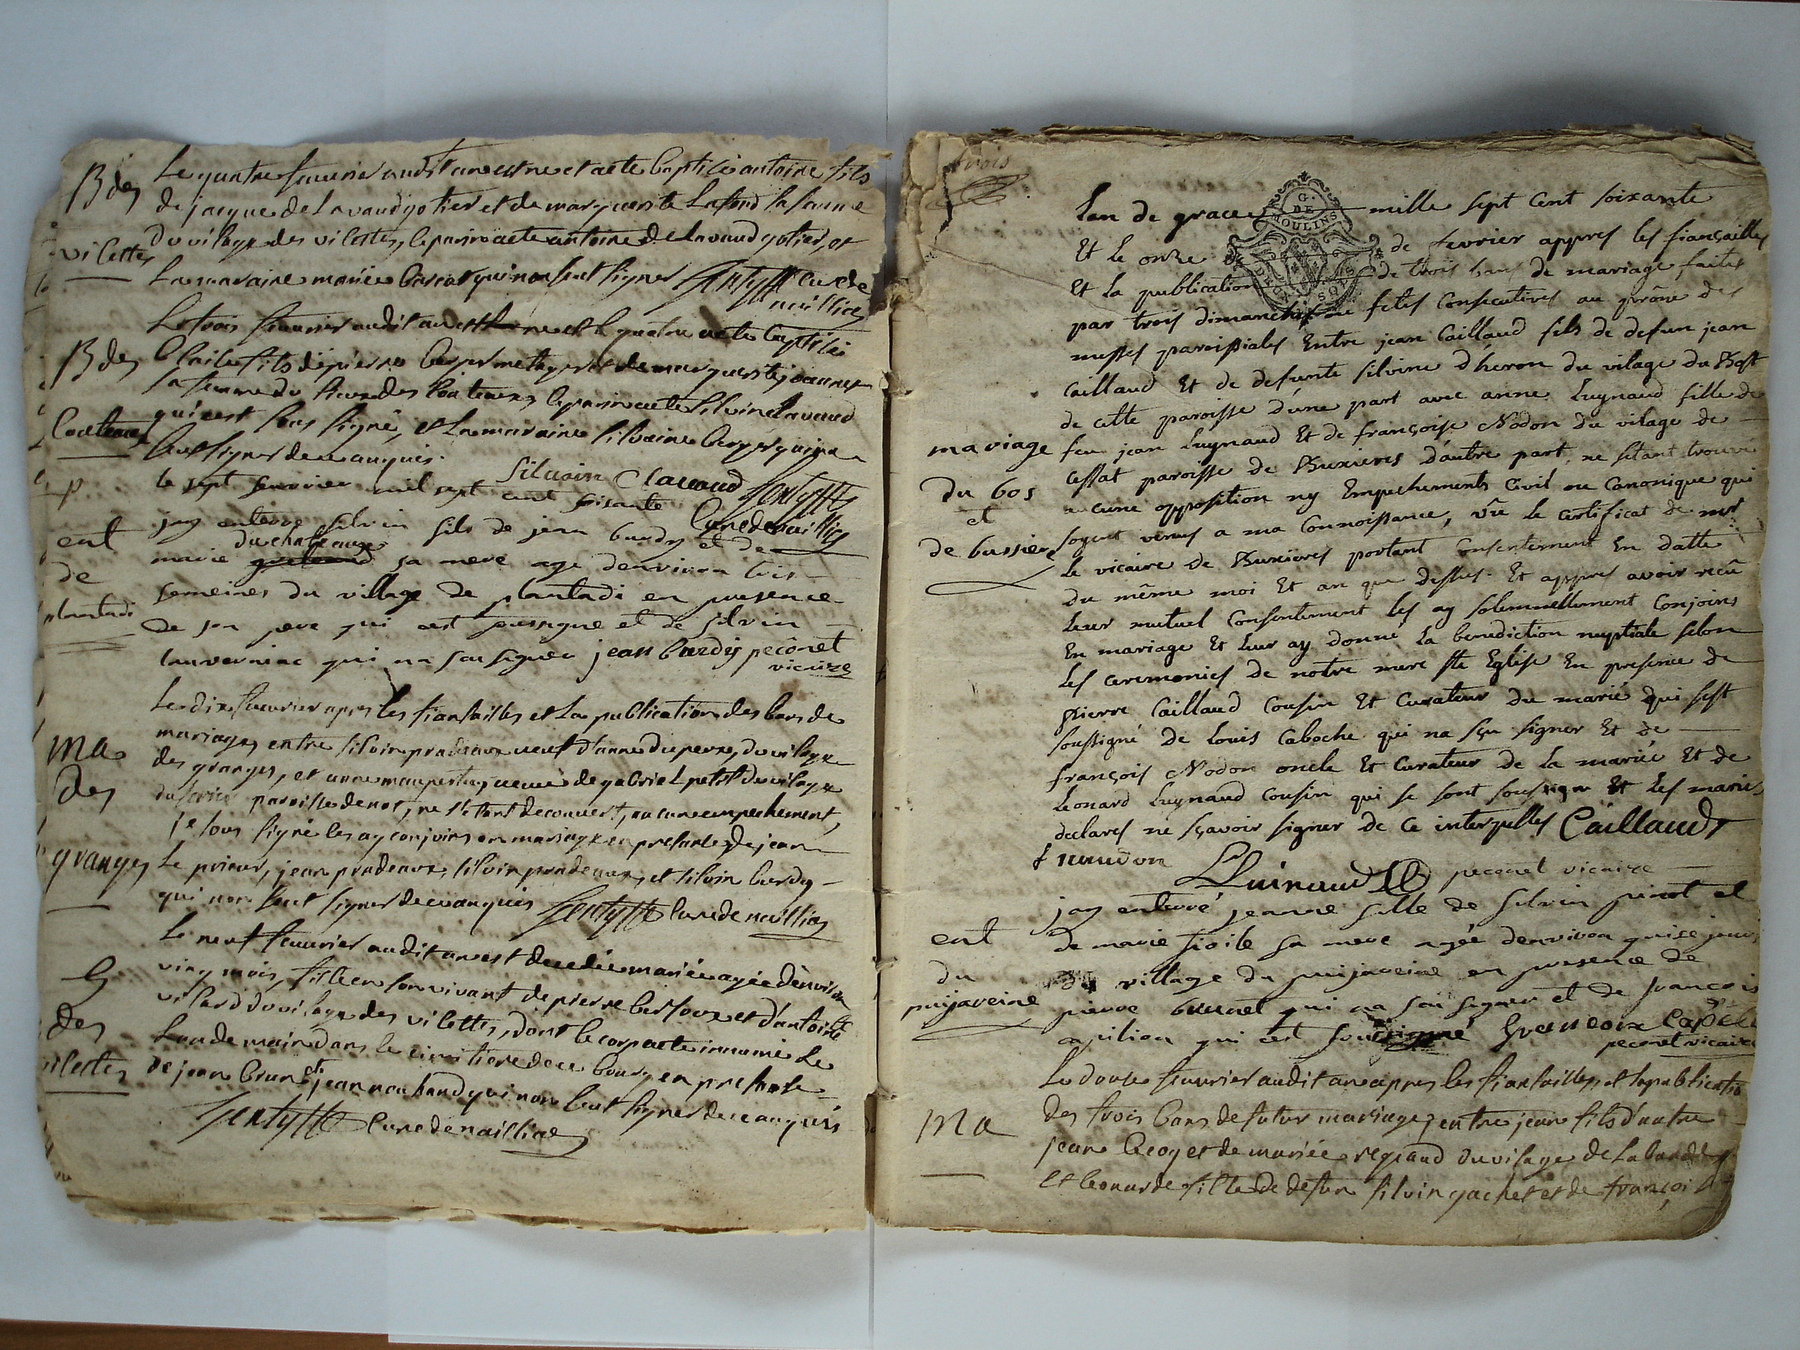 B des
Le quatre feuvrier audit an est ne et a ete baptisé antoine fils
de jacque de Lavaudgotier et de marguerite Lafond sa femme
vilettes
du vilage des vilettes, le parin a ete antoine de Lavaudgotier, et
La maraine mariée qui non sceut signer Gentyffe curé de
naillia
Le trois feuvrier audit an est ne et le quatre a ete baptisé
B des
fils de pierre berger metayer et de marguerite joannet
sa femme du lieu des Couteaux, le parin a ete Silvin Clavaud
Couteaux
qui cest sous signé, et La maraine silvaine berger qui na
sceut signer de ce anquis.
Silvain Clavaud Gentyffe
le sept fevrier mil sept cent soisante
Curé de naillia
jay enterré silvin fils de jean burdy et de
ent
duchateaux
marie sa mere age denviron trois
de
semeines du village de plantadi en presence
plantadi
de son pere qui cest sussigne et de silvin
lauverniac qui na sau signer jean burdy peconet
vicaire
Le dix feuvrier apres les fiansailles et La publication des bans de
mariage, entre silvin pradeaux veuf d'anne duperre, du vilage
ma
des granges, et anne maupertuy veuve de gabriel petit du vilage
des
paroisse de not, ne s'etant decouvert, aucun empechement,
je sous signé les ay conjoins en mariage en presence de jean
granges
Le prieur, jean pradeaux, silvin pradeaux, et silvin burdy
qui non sceut signer de ce anquis Gentyffe Curé de naillia
Le neuf feuvrier audit an est decedée mariée agée d'environ
vingt mois, fille en son vivant de pierre et d'antoinette
des
vilard du vilage des vilettes, dont le corp a ete innumé Le
Lendemain dans le cimetiere de ce bourg en presence
vilettes
de jean brunet jean nouhaud qui non sceut signer de ce anquis
Gentyffe Curé de naillia
trois
G. DE MOULINS
Lan de grace mille sept cent soixante
Et le onze de fevrier appres les fiançailles
Et la publication de trois bans de mariage faites
par trois dimanches ou fetes consecutives au prône des
messes paroissiales Entre jean Caillaud fils de defun jean
Caillaud Et de defunte silvine dheron du vilage du Bost
de cette paroisse d'une part avec anne Luynaud fille de
mariage
feu jean Luynaud Et de françoise Nodon du vilage de
Cessat paroisse de Bussieres d'autre part, ne s'etant trouvé
du bos
aucune opposition ny Empechements Civil ou Canonique qui
et
soyent venus a ma Connoissance, vûe le certificat de mr
de bussiere
Le vicaire de Bussieres portant Consentement En datte
du même moi Et an que dessus. Et appres avoir recû
Leur mutuel Consentement les ay solemnellement Conjoins
En mariage Et leur ay donné la benediction nuptiale selon
Les ceremonies de notre mere ste Eglise En presence de
pierre Caillaud Cousin Et Curateur du marié qui sest
soussigné de Louis Caboche qui na sçu signer Et de
françois Nodon oncle Et Curateur de la mariée Et de
Leonard Luynaud Cousin qui se sont soussigné Et les mariés
declares ne sçavoir signer de ce interpellés Caillaud
f naudon
Luinaud peconet vicaire
jay enterré jeanne fille de silvin pinot et
ent
de marie sa mere agée denviron quise jours
du
du village du puijaveine en presence de
puijaveine
pierre brunet qui na sau signer et de francois
capilion qui cest sousigné
peconet vicaire
Le douse feuvrier audit an apres les fiansailles et la publication
ma
des trois bans de futur mariage, entre jean fils d'autre
jean et de mariée regnaud du vilage de
et Leonarde fille de defun silvin gachet et de françoi